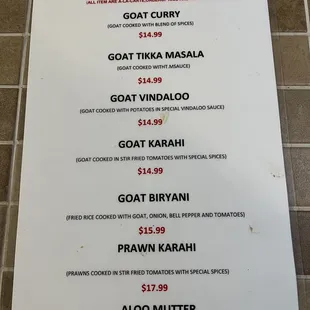 (ALL ITEM ARE A-LA-CARTE
GOAT CURRY
(GOAT COOKED WITH BLEND OF SPICES)
$14.99
GOAT TIKKA MASALA
(GOAT COOKED WITHT.MSAUCE)
$14.99
GOAT VINDALOO
(GOAT COOKED WITH POTATOES IN SPECIAL VINDALOO SAUCE)
$14.99
GOAT KARAHI
(GOAT COOKED IN STIR FRIED TOMATOES WITH SPECIAL SPICES)
$14.99
GOAT BIRYANI
(FRIED RICE COOKED WITH GOAT, ONION, BELL PEPPER AND TOMATOES)
$15.99
PRAWN KARAHI
(PRAWNS COOKED IN STIR FRIED TOMATOES WITH SPECIAL SPICES)
$17.99
ALOO MUTTER